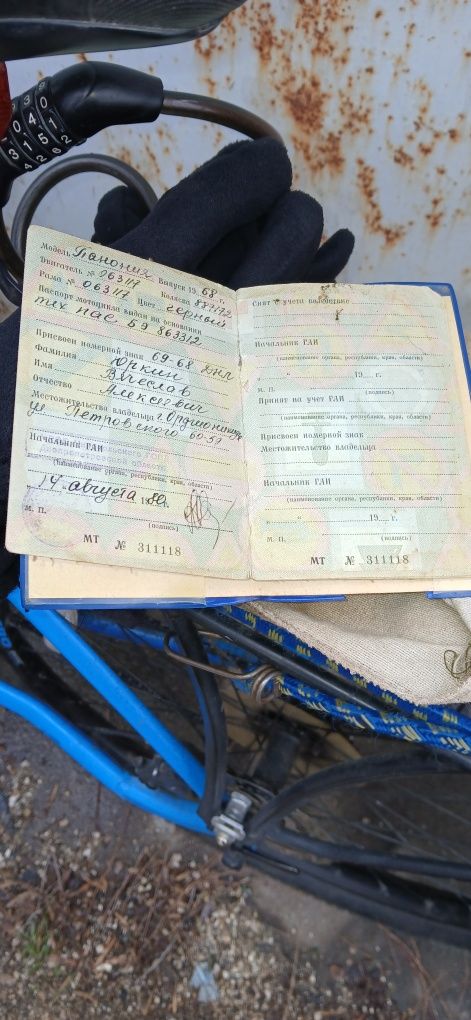 Модель Панония
Двигатель № 063117 Выпуск 1968 г.
Рама № 063117 Цвет черный
Коляска 887172
Паспорт мотоцикла выдан на основании
тех пас БЭ 863312
Присвоен номерной знак 69-68 ДНЛ
Фамилия Юркин
Имя Вячеслав
Отчество Алексеевич
Местожительство владельца г. Орджоникидзе
ул Петровского
Начальник ГАИ
(наименование органа, республики, края, области)
14 августа 1980 г.
М. П. (подпись)
МТ № 311118
Снят с учета вследствие
Начальник ГАИ
(наименование органа, республики, края, области)
„ “ 19 г.
М. П. (подпись)
Принят на учет ГАИ
(наименование органа, республики, края, области)
Присвоен номерной знак
Местожительство владельца
Начальник ГАИ
(наименование органа, республики, края, области)
„ “ 19 г.
М. П. (подпись)
МТ № 311118